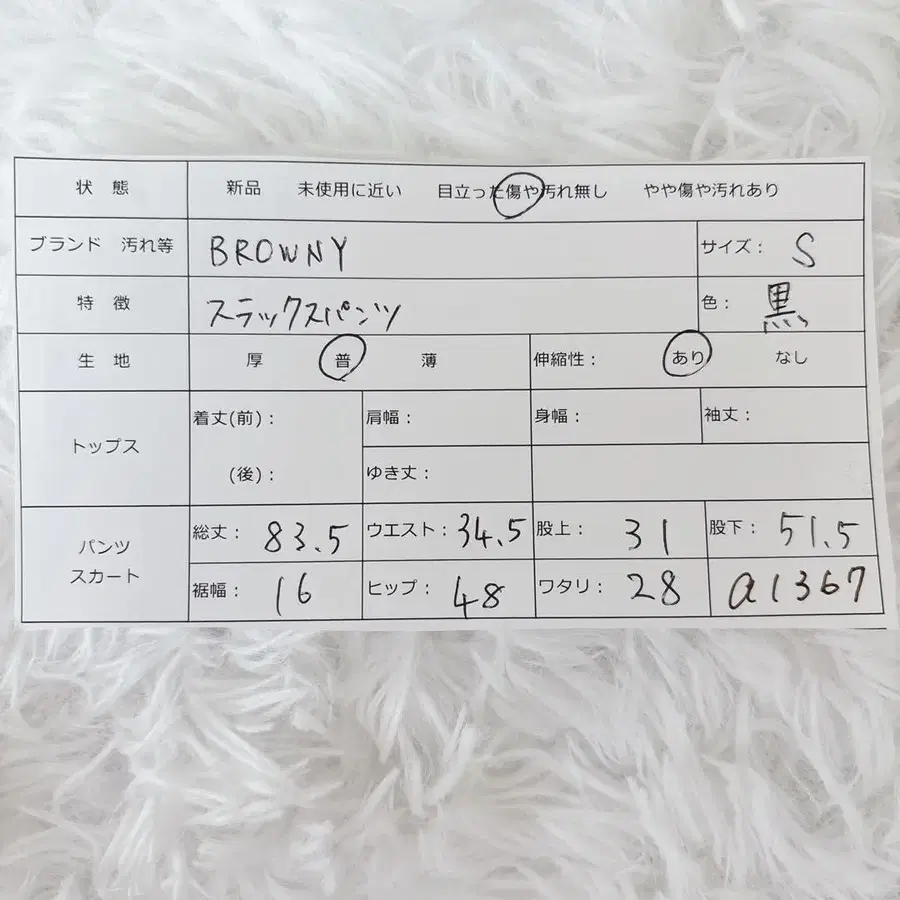 状 態 新品 未使用に近い 目立った傷や汚れ無し やや傷や汚れあり
ブランド 汚れ等 BROWNY サイズ： S
特 徴 スラックスパンツ 色： 黒
生 地 厚 普 薄 伸縮性： あり なし
トップス 着丈(前)： 肩幅： 身幅： 袖丈：
(後)： ゆき丈：
パンツ スカート 総丈： 83.5 ウエスト： 34.5 股上： 31 股下： 51.5
裾幅： 16 ヒップ： 48 ワタリ： 28 a1367